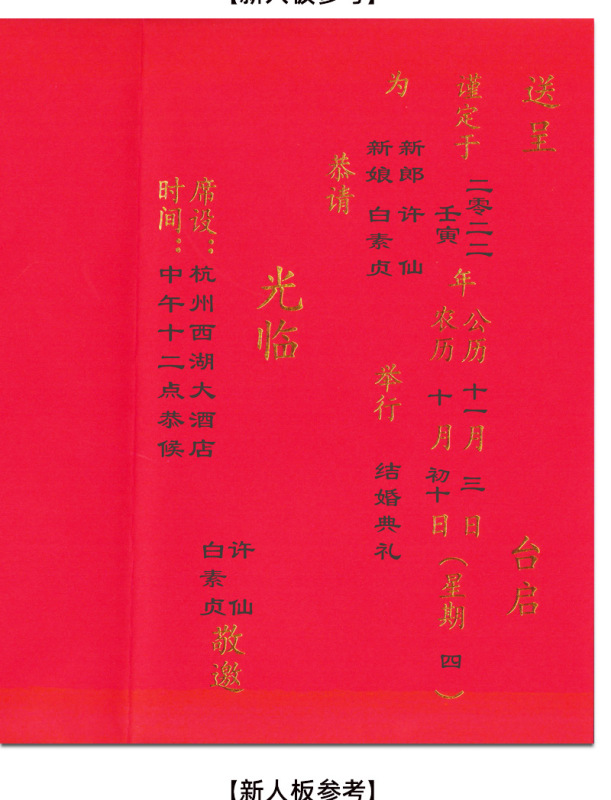 【新人板参考】
送呈 台启
谨定于 二零二二 年 公历 十一 月 三 日 (星期 四)
壬寅 农历 十 月 初十 日
为 新郎 许仙
新娘 白素贞 举行 结婚典礼
恭请
光临
席设：杭州西湖大酒店
时间：中午十二点恭候
许仙
白素贞 敬邀
【新人板参考】